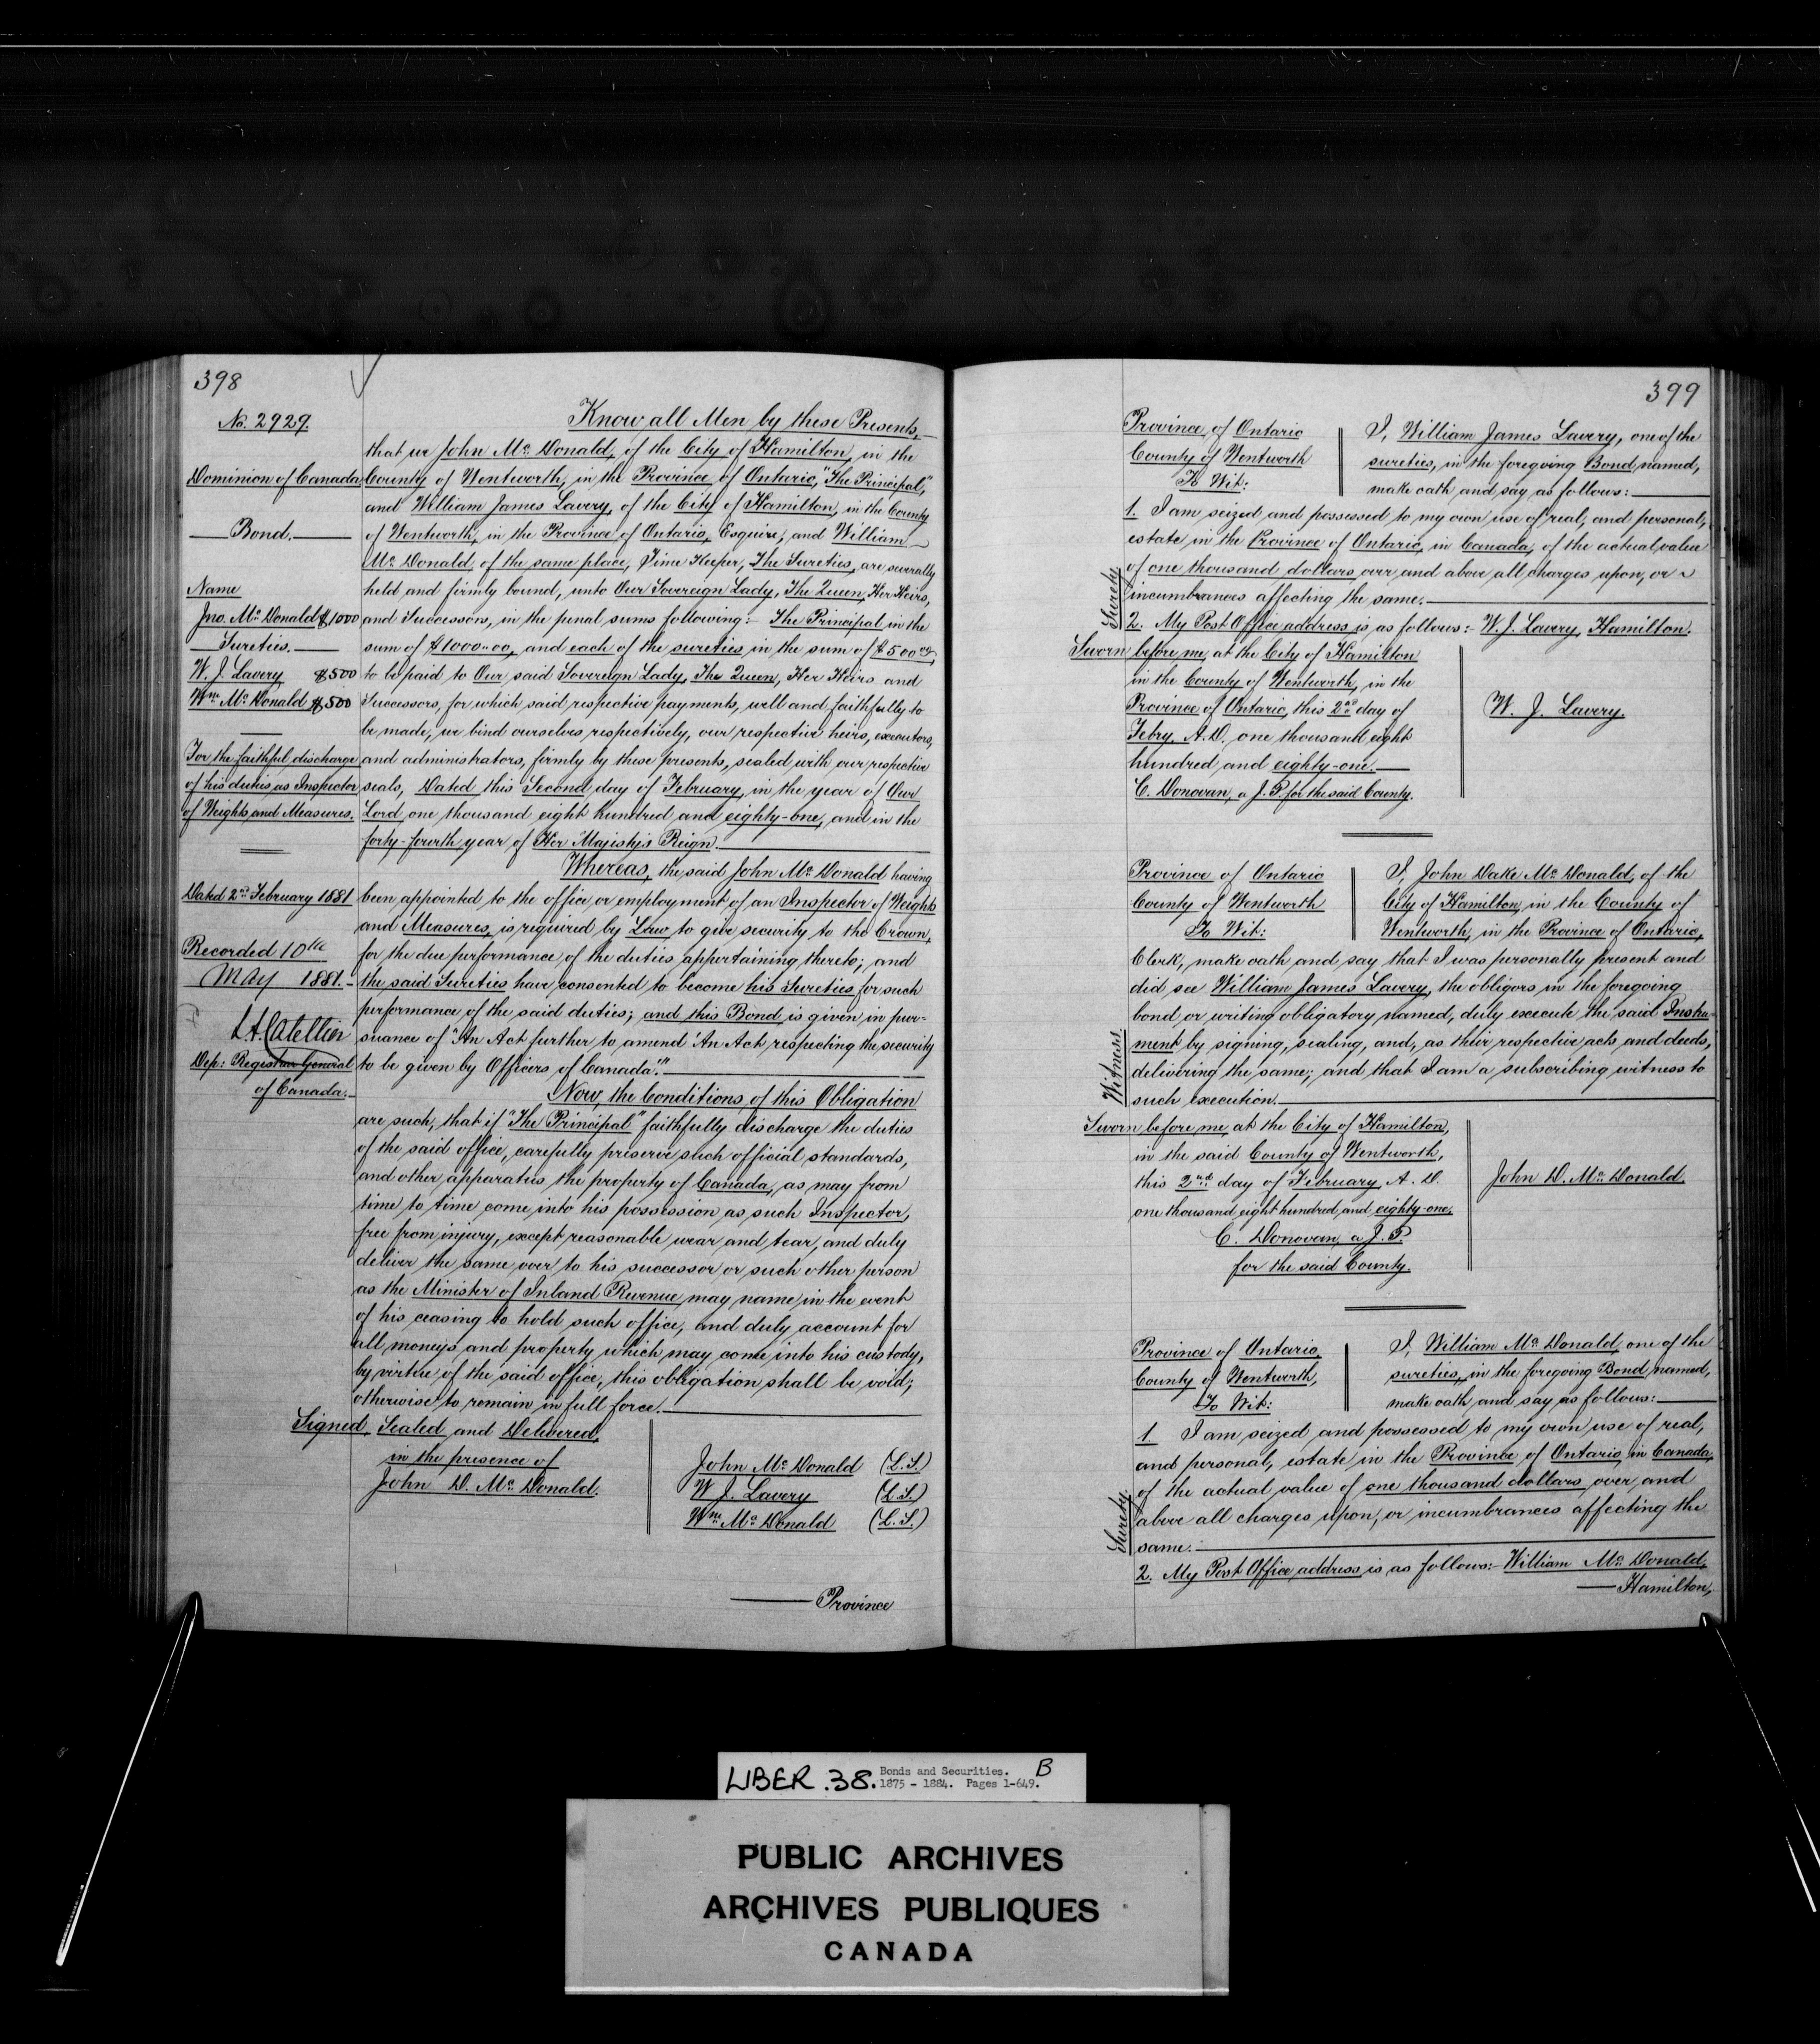 398
No. 2929.
Dominion of Canada
Bond.
Name
Jno. McDonald $1000
Sureties.
W. J. Lavery $500
Wm. McDonald $500
For the faithful discharge
of his duties as Inspector
of Weights and Measures.
Dated 2nd February 1881
Recorded 10th
MAY 1881.
Dep: Registrar General
of Canada.
Know all Men by these Presents,
that we John McDonald, of the City of Hamilton, in the
County of Wentworth, in the Province of Ontario, "The Principal",
and William James Lavery, of the City of Hamilton, in the County
of Wentworth, in the Province of Ontario, Esquire, and William
McDonald, of the same place, Time Keeper, The Sureties, are severally
held and firmly bound, unto Our Sovereign Lady, The Queen, Her Heirs,
and Successors, in the penal sums following:- The Principal in the
sum of $1000.00, and each of the sureties in the sum of $500.00,
to be paid to Our said Sovereign Lady, The Queen, Her Heirs and
Successors, for which said respective payments, well and faithfully to
be made, we bind ourselves respectively, our respective heirs, executors,
and administrators, firmly by these presents, sealed with our respective
seals, Dated this Second day of February, in the year of Our
Lord one thousand eight hundred and eighty-one, and in the
forty-fourth year of Her Majesty's Reign.
Whereas, the said John McDonald having
been appointed to the office or employment of an Inspector of Weights
and Measures, is required by Law to give security to the Crown,
for the due performance of the duties appertaining thereto; and
the said Sureties have consented to become his Sureties for such
performance of the said duties; and this Bond is given in pur-
suance of "An Act further to amend 'An Act respecting the security
to be given by Officers of Canada'."
Now, the Conditions of this Obligation
are such, that if "The Principal" faithfully discharge the duties
of the said office, carefully preserve such official standards,
and other apparatus the property of Canada, as may from
time to time come into his possession as such Inspector,
free from injury, except reasonable wear and tear, and duly
deliver the same over to his successor or such other person
as the Minister of Inland Revenue may name in the event
of his ceasing to hold such office, and duly account for
all moneys and property which may come into his custody,
by virtue of the said office, this obligation shall be void;
otherwise to remain in full force.
Signed, Sealed and Delivered,
in the presence of
John D. McDonald.
John McDonald (L.S.)
W. J. Lavery (L.S.)
Wm. McDonald (L.S.)
Province
399
Province of Ontario
County of Wentworth
To Wit:
I, William James Lavery, one of the
sureties, in the foregoing Bond named,
make oath and say as follows:
1. I am seized and possessed to my own use of real, and personal,
estate in the Province of Ontario, in Canada, of the actual value
of one thousand dollars over and above all charges upon, or
incumbrances affecting the same.
Surety
2. My Post Office address is as follows:- W. J. Lavery, Hamilton.
Sworn before me, at the City of Hamilton
in the County of Wentworth, in the
Province of Ontario, this 2nd day of
Febry. A.D. one thousand eight
hundred and eighty-one.
C. Donovan, a J.P. for the said County.
W. J. Lavery.
Province of Ontario
County of Wentworth
To Wit:
I, John Dake McDonald, of the
City of Hamilton, in the County of
Wentworth, in the Province of Ontario,
Clerk, make oath and say that I was personally present and
did see William James Lavery, the obligors in the foregoing
bond or writing obligatory named, duly execute the said Instru-
ment by signing, sealing, and, as their respective acts and deeds,
delivering the same; and that I am a subscribing witness to
such execution.
Witness
Sworn before me, at the City of Hamilton,
in the said County of Wentworth,
this 2nd day of February A.D.
one thousand eight hundred and eighty-one.
C. Donovan, a J.P.
for the said County.
John D. McDonald.
Province of Ontario,
County of Wentworth,
To Wit:
I, William McDonald, one of the
sureties, in the foregoing Bond named,
make oath and say as follows:
1 I am seized and possessed to my own use of real,
and personal, estate in the Province of Ontario, in Canada,
of the actual value of one thousand dollars over and
above all charges upon, or incumbrances affecting the
same.
Surety
2. My Post Office address is as follows:- William McDonald,
Hamilton,
LIBER. 38. Bonds and Securities. B
1875 - 1884. Pages 1-649.
PUBLIC ARCHIVES
ARCHIVES PUBLIQUES
CANADA